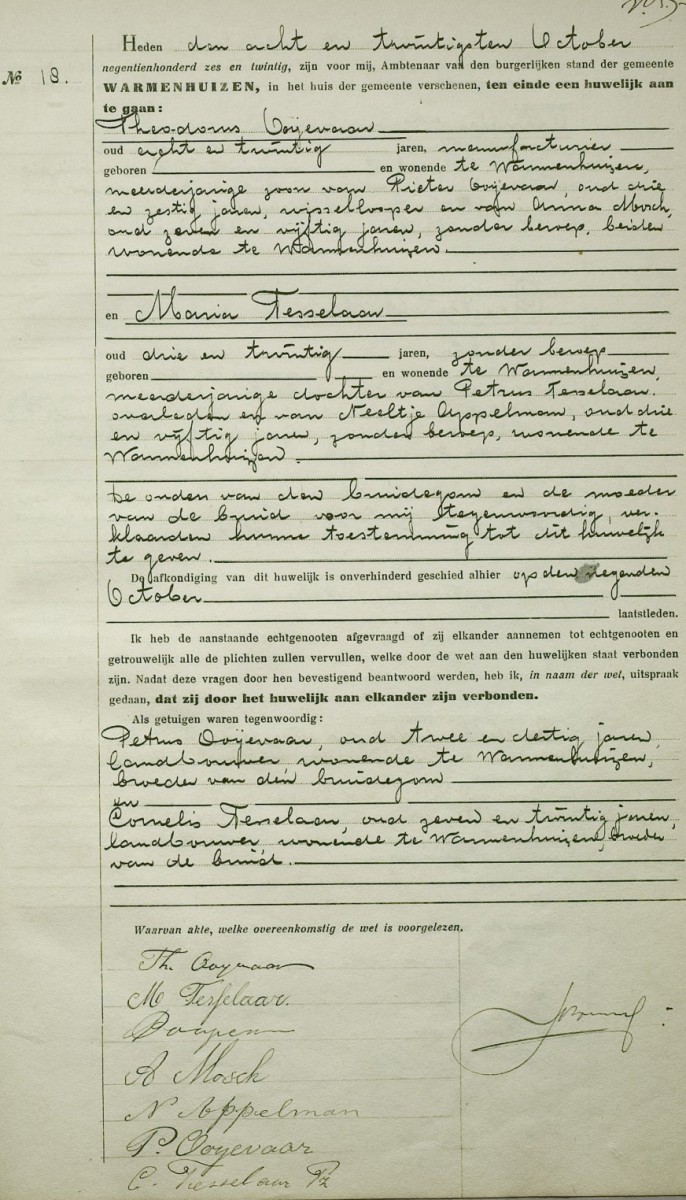 Heden den acht en twintigsten October
negentienhonderd zes en twintig, zijn voor mij, Ambtenaar van den burgerlijken stand der gemeente
No 18.
WARMENHUIZEN, in het huis der gemeente verschenen, ten einde een huwelijk aan
te gaan:
Theodorus Ooijevaar
oud acht en twintig jaren, manufacturier
geboren en wonende te Warmenhuizen,
meerderjarige zoon van Pieter Ooijevaar, oud drie
en zestig jaren, wisselloper en van Anna Mosch,
oud zeven en vijftig jaren, zonder beroep, beiden
wonende te Warmenhuizen.
en Maria Tesselaar
oud drie en twintig jaren, zonder beroep
geboren en wonende te Warmenhuizen,
meerderjarige dochter van Petrus Tesselaar.
overleden en van Neeltje Appelman, oud drie
en vijftig jaren, zonder beroep, wonende te
Warmenhuizen.
De ouders van den bruidegom en de moeder
van de bruid voor mij tegenwoordig, ver-
klaarden hunne toestemming tot dit huwelijk
te geven.
De afkondiging van dit huwelijk is onverhinderd geschied alhier op den negenden
October
laatstleden.
Ik heb de aanstaande echtgenooten afgevraagd of zij elkander aannemen tot echtgenooten en
getrouwelijk alle de plichten zullen vervullen, welke door de wet aan den huwelijken staat verbonden
zijn. Nadat deze vragen door hen bevestigend beantwoord werden, heb ik, in naam der wet, uitspraak
gedaan, dat zij door het huwelijk aan elkander zijn verbonden.
Als getuigen waren tegenwoordig:
Petrus Ooijevaar, oud twee en dertig jaren,
landbouwer wonende te Warmenhuizen,
broeder van den bruidegom
en
Cornelis Tesselaar, oud zeven en twintig jaren,
landbouwer, wonende te Warmenhuizen, broeder
van de bruid.
Waarvan akte, welke overeenkomstig de wet is voorgelezen.
Th. Ooyevaar
M Tesselaar.
A Mosch
N Appelman
P. Ooyevaar
C. Tesselaar Pz